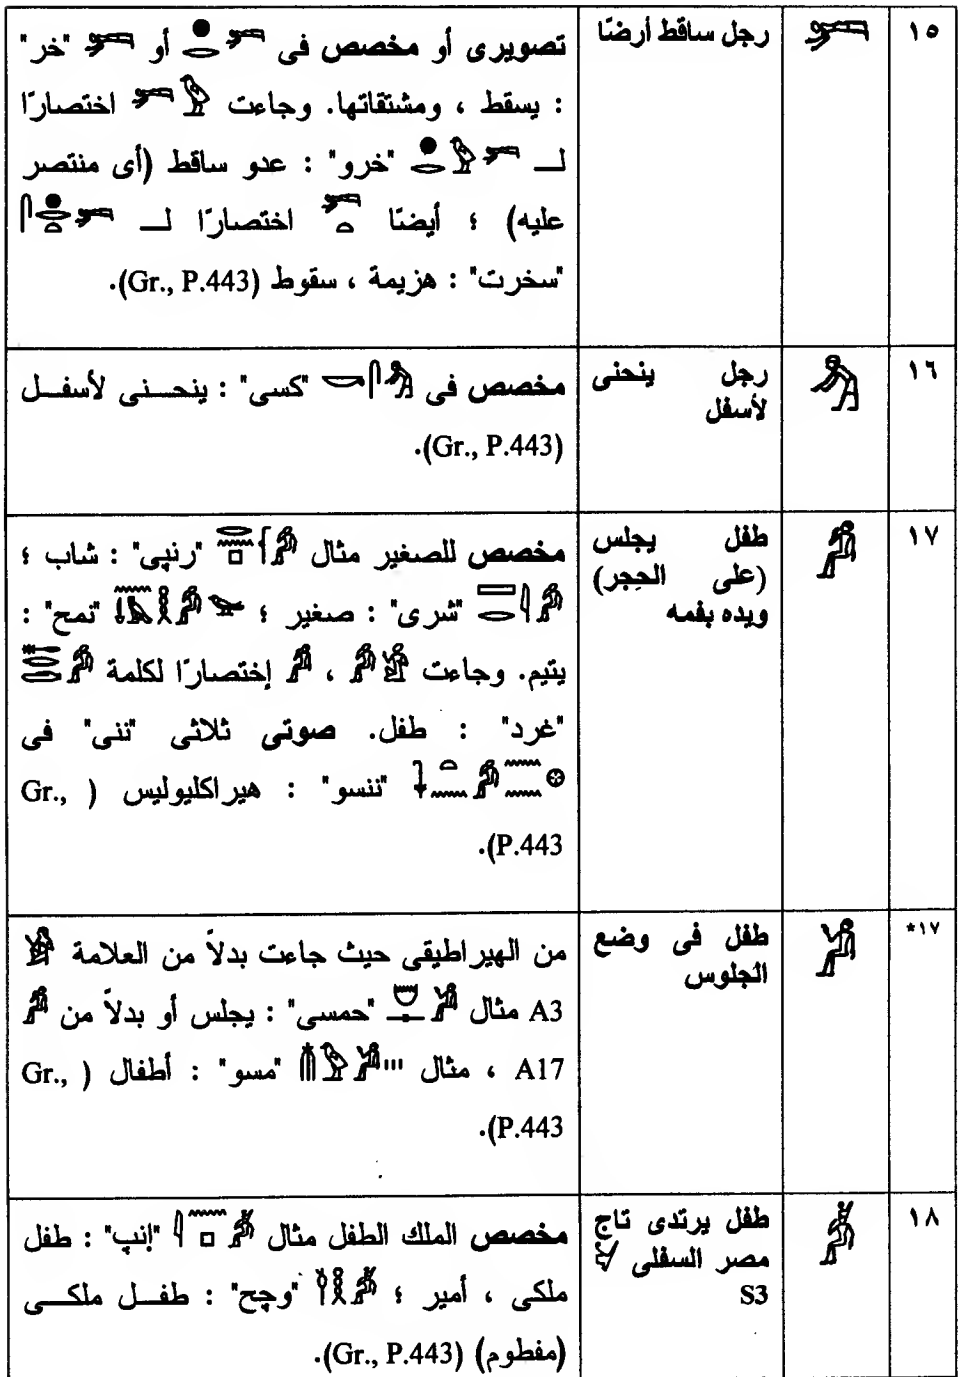 ١٥
رجل ساقط أرضًا
تصويرى أو مخصص فى 𓐍𓂋𓀒 أو 𓀒 "خر"
: يسقط ، ومشتقاتها. وجاءت 𓀒𓅱 اختصارًا
لــ 𓐍𓂋𓅱𓀒 "خرو" : عدو ساقط (أى منتصر
عليه) ؛ أيضنًا 𓀒𓏏 اختصارًا لــ 𓋴𓐍𓂋𓏏𓀒
"سخرت" : هزيمة ، سقوط (Gr., P.443).
١٦
رجل ينحنى
لأسفل
مخصص فى 𓎡𓋴𓀖 "كسى" : ينحــنى لأسفــل
(Gr., P.443).
١٧
طفل يجلس
(على الحِجر)
ويده بفمه
مخصص للصغير مثال 𓂋𓈖𓊪𓆳𓀔 "رنپى" : شاب ؛
𓈙𓂋𓇋𓀔 "شرى" : صغير ؛ 𓈖𓄟𓅓𓎛𓀔𓅪 "نمح" :
يتيم. وجاءت 𓀔 ، 𓀔 إختصارًا لكلمة 𓐍𓂋𓂧𓀔
"غرد" : طفل. صوتى ثلاثى "ننى" فى
𓇓𓏏𓈖𓀔𓈖𓈖𓊖 "ننسو" : هيراكليوليس ( Gr.,
P.443).
١٧*
طفل فى وضع
الجلوس
من الهيراطيقى حيث جاءت بدلاً من العلامة 𓀃
A3 مثال 𓀕 "حمسى" : يجلس أو بدلاً من 𓀔
A17 ، مثال 𓄟𓋴𓅱𓀕𓏥 "مسو" : أطفال ( Gr.,
P.443).
١٨
طفل يرتدى تاج
مصر السفلى 𓋔
S3
مخصص الملك الطفل مثال 𓇋𓈖𓊪𓀖 "إنپ" : طفل
ملكى ، أمير ؛ "وچح" : طفــل ملكــى
(مفطوم) (Gr., P.443).